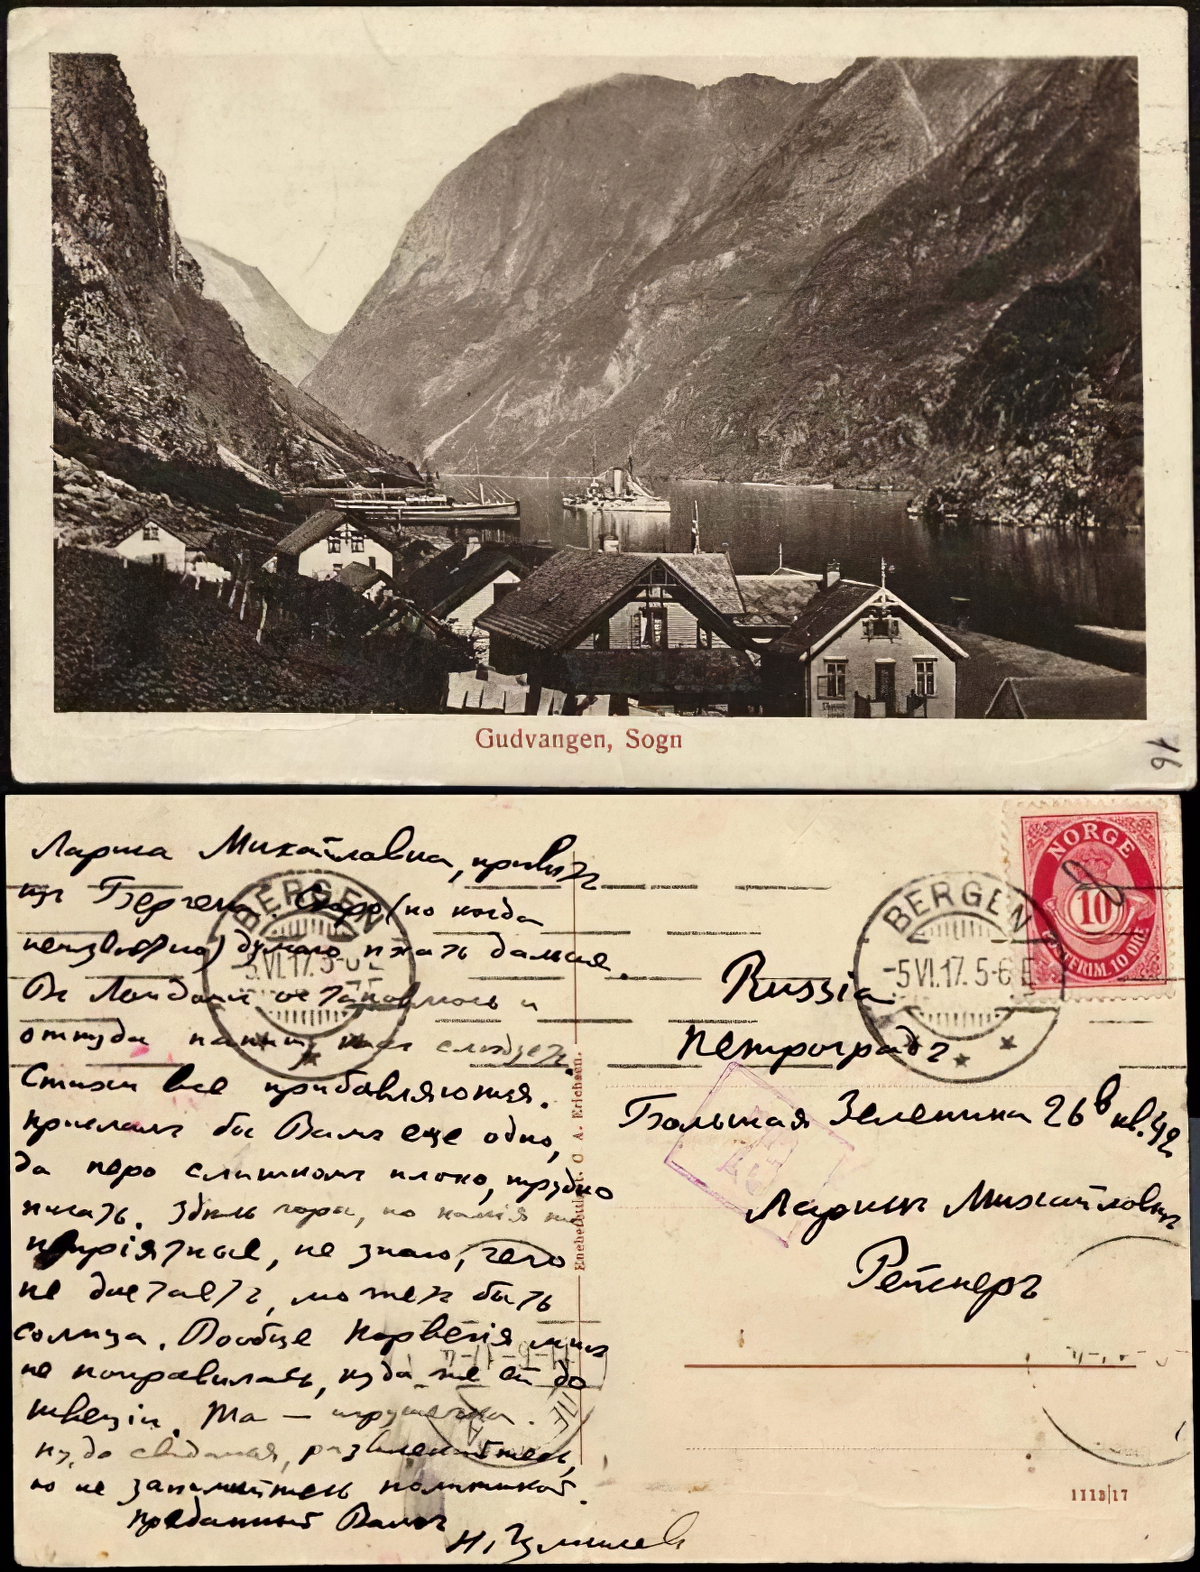 Gudvangen, Sogn
16
Лариса Михайловна, привѣтъ
изъ Бергена. Скоро (но когда
неизвѣстно) думаю ѣхать дальше.
Въ Лондонѣ остановлюсь и
оттуда напишу какъ слѣдуетъ.
Стихи все прибавляются.
Прислалъ бы Вамъ еще одно,
да перо слишкомъ плохо, трудно
писать. Здѣсь горы, но какія то
непріятные, не знаю, чего
не достаетъ, можетъ быть
солнца. Вообще Норвегія мнѣ
не понравилась, куда же ей до
Швеціи. Та — игрушечка.
Ну, до свиданья, развлекайтесь,
но не занимайтесь политикой.
Преданный Вамъ
Н. Гумилев
BERGEN
-5 VI. 17. 5-6 E
Eneberettiget. C. A. Erichsen.
NORGE
10
BERGEN
-5 VI. 17. 5-6 E
Russia
Петроградъ
Большая Зеленина 26в кв. 42
Ларисѣ Михайловнѣ
Рейснеръ
1113/17